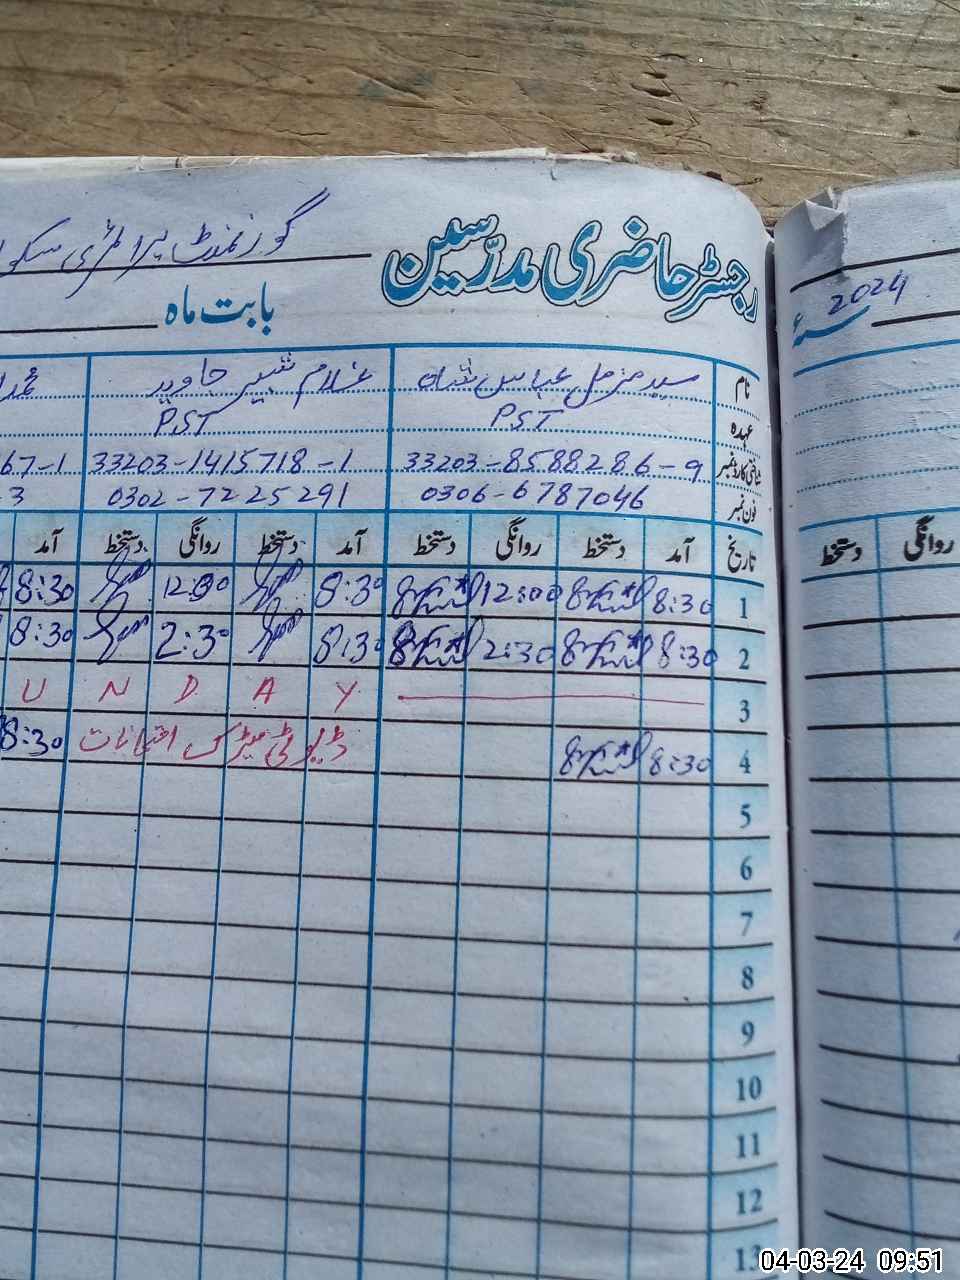 رجسٹر حاضری مدرّسین گورنمنٹ پرائمری سکو
بابت ماہ
2024
نام سید مزمل عباس شاہ غلام شبیر جاوید
عہدہ PST PST
شناختی کارڈ نمبر 33203-8588286-9 33203-1415718-1 67-1
فون نمبر 0306-6787046 0302-7225291 3
تاریخ آمد دستخط روانگی دستخط آمد دستخط روانگی دستخط آمد
روانگی دستخط
1 8:30 12:00 8:30 12:00 8:30
2 8:30 2:30 8:30 2:30 8:30
3 U N D A Y
4 8:30 ڈیوٹی میٹرک امتحانات 8:30
5
6
7
8
9
10
11
12
13
04-03-24 09:51